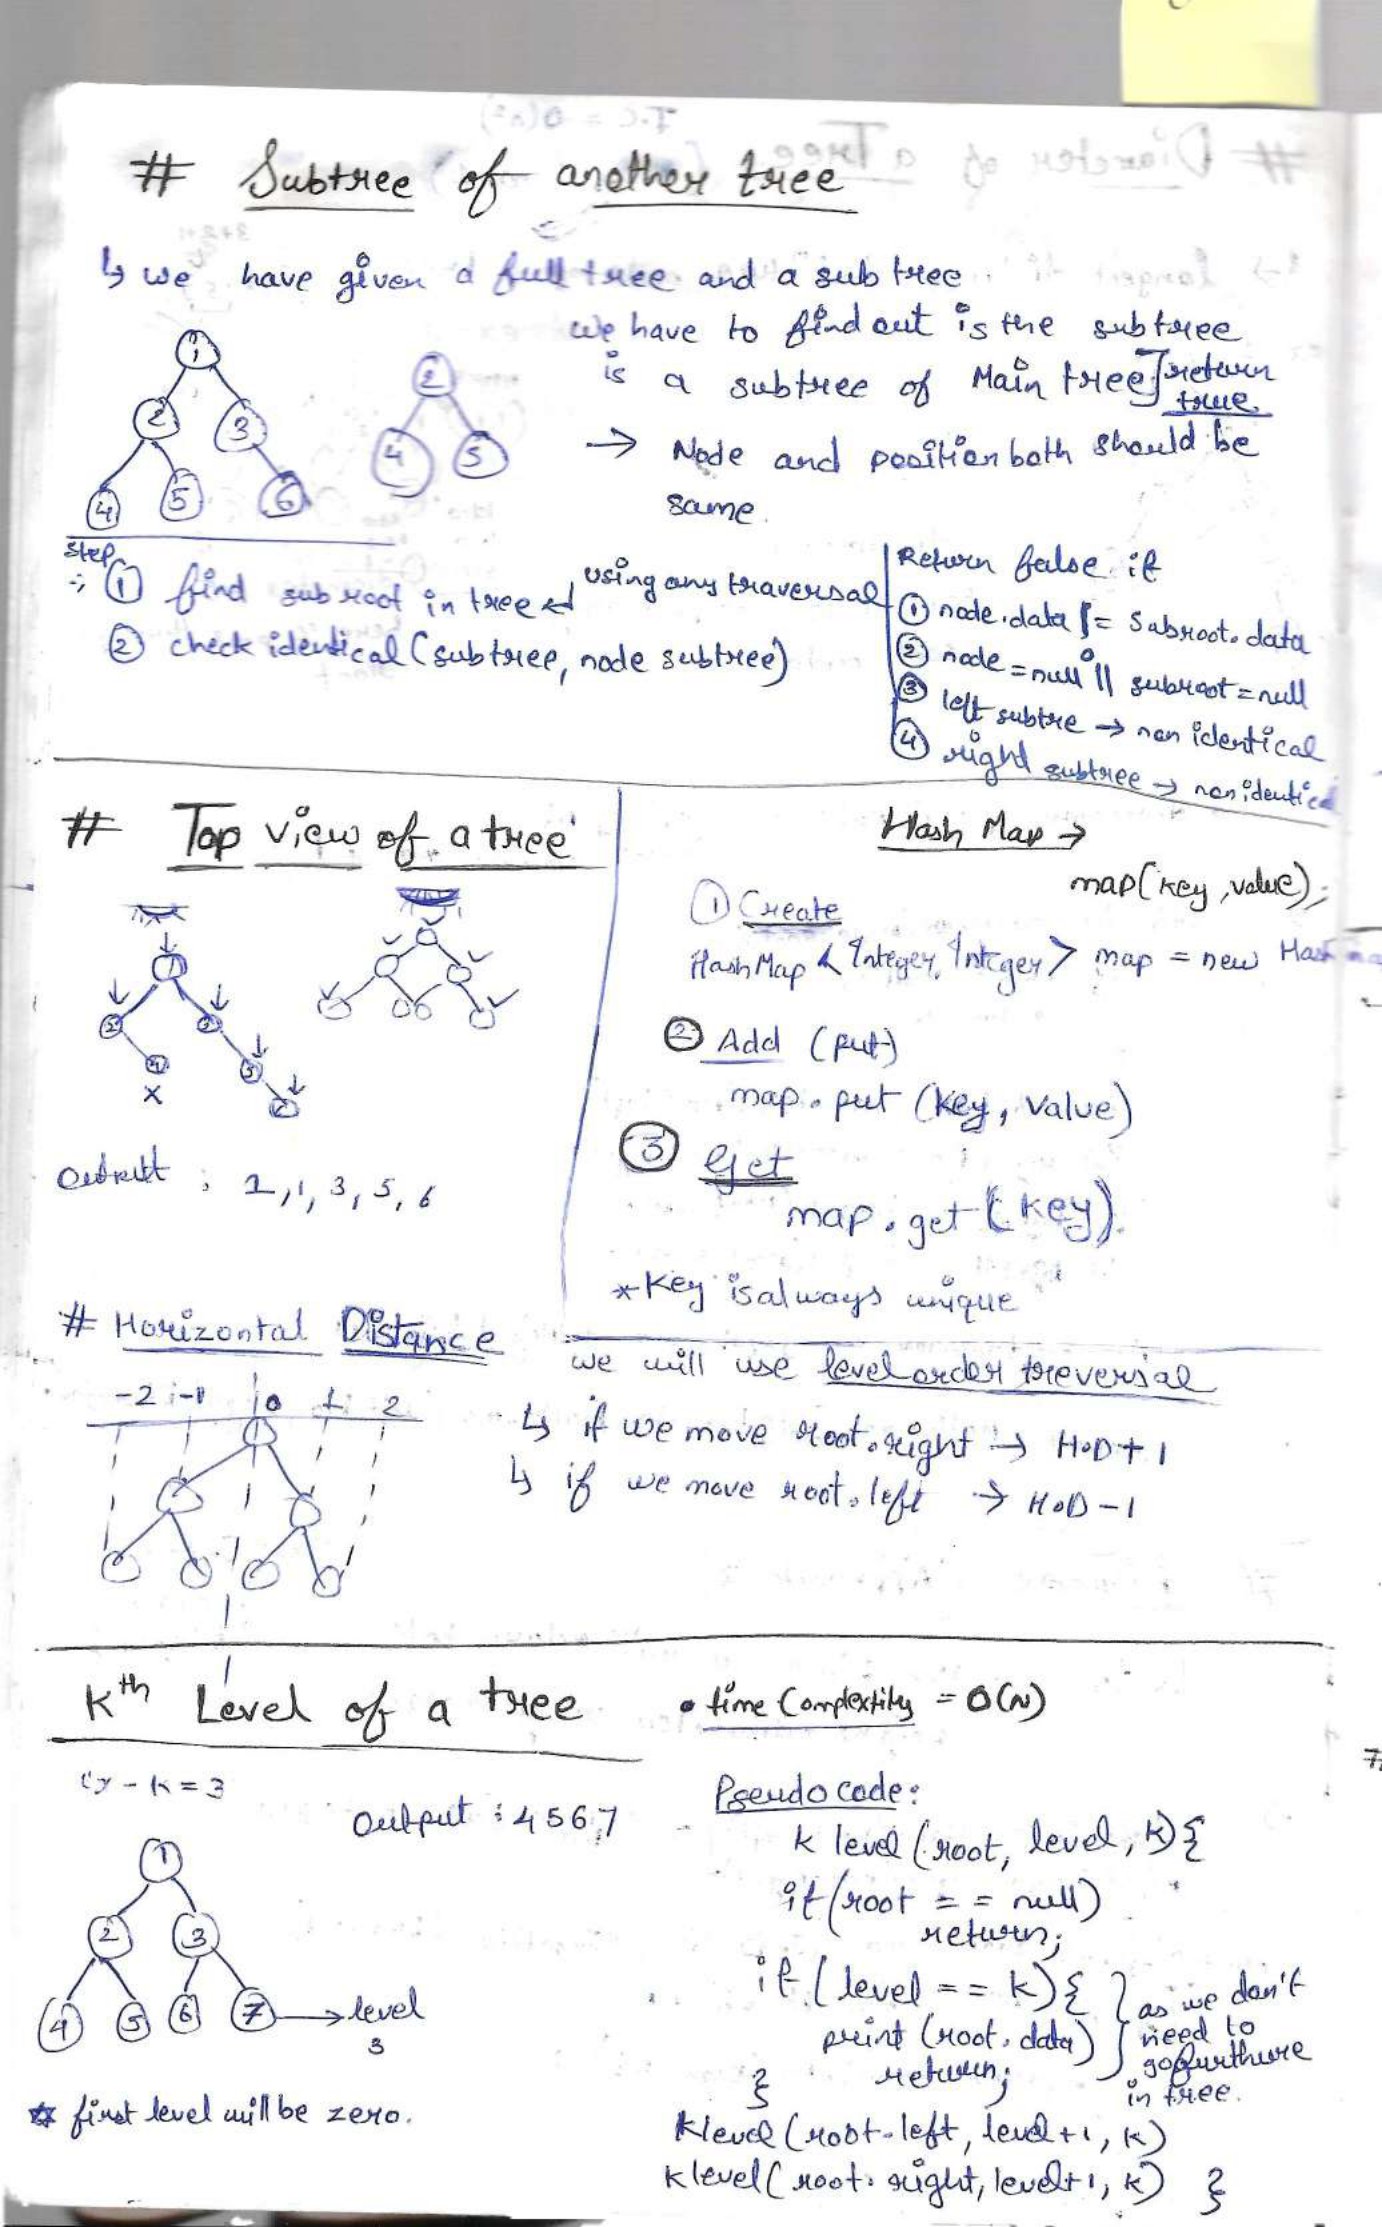 # Subtree of another tree
↳ we have given a full tree and a sub tree
we have to find out is the subtree
is a subtree of Main tree] return
true
→ Node and position both should be
same.
1
2 3
4 5 6
2
4 5
Step
① find sub root in tree ↵ using any traversal
② check identical (subtree, node subtree)
Return false if
① node.data != Subroot.data
② node = null || subroot = null
③ left subtre → non identical
④ right subtree → non identical
# Top view of a tree
Output : 2, 1, 3, 5, 6
Hash Map →
map(key, value);
① Create
HashMap < Integer, Integer > map = new Hash
② Add (put)
map.put (key, value)
③ Get
map.get (key)
* Key is always unique
# Horizontal Distance
-2 -1 0 1 2
we will use level order treversal
↳ if we move root.right → H.D + 1
↳ if we move root.left → H.D - 1
Kth Level of a tree
• time Complextity = O(N)
K = 3
Output : 4 5 6 7
1
2 3
4 5 6 7 → level
3
* first level will be zero.
Pseudo code:
k level (root, level, k) {
if (root == null)
return;
if (level == k) {
print (root.data)
return;
}
} as we don't
need to
go furthure
in tree.
Klevel (root.left, level+1, k)
klevel (root.right, level+1, k) }